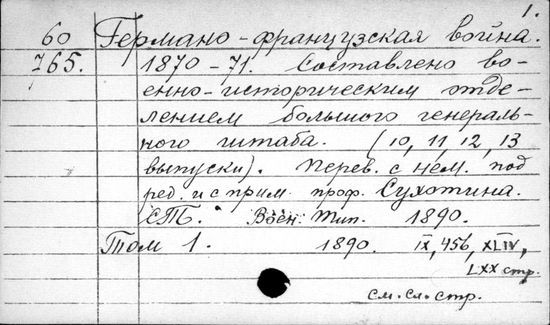 1.
60 Германо-французская война.
765. 1870-71. Составлено во-
енно-историческим отде-
лением большого генераль-
ного штаба. (10, 11 12, 13
выпуски). Перев. с нем. под
ред. и с прим. проф. Сухотина.
СПБ. Воен. Тип. 1890.
Том 1. 1890. IX, 456, XLIV,
LXX стр.
см. сл. стр.